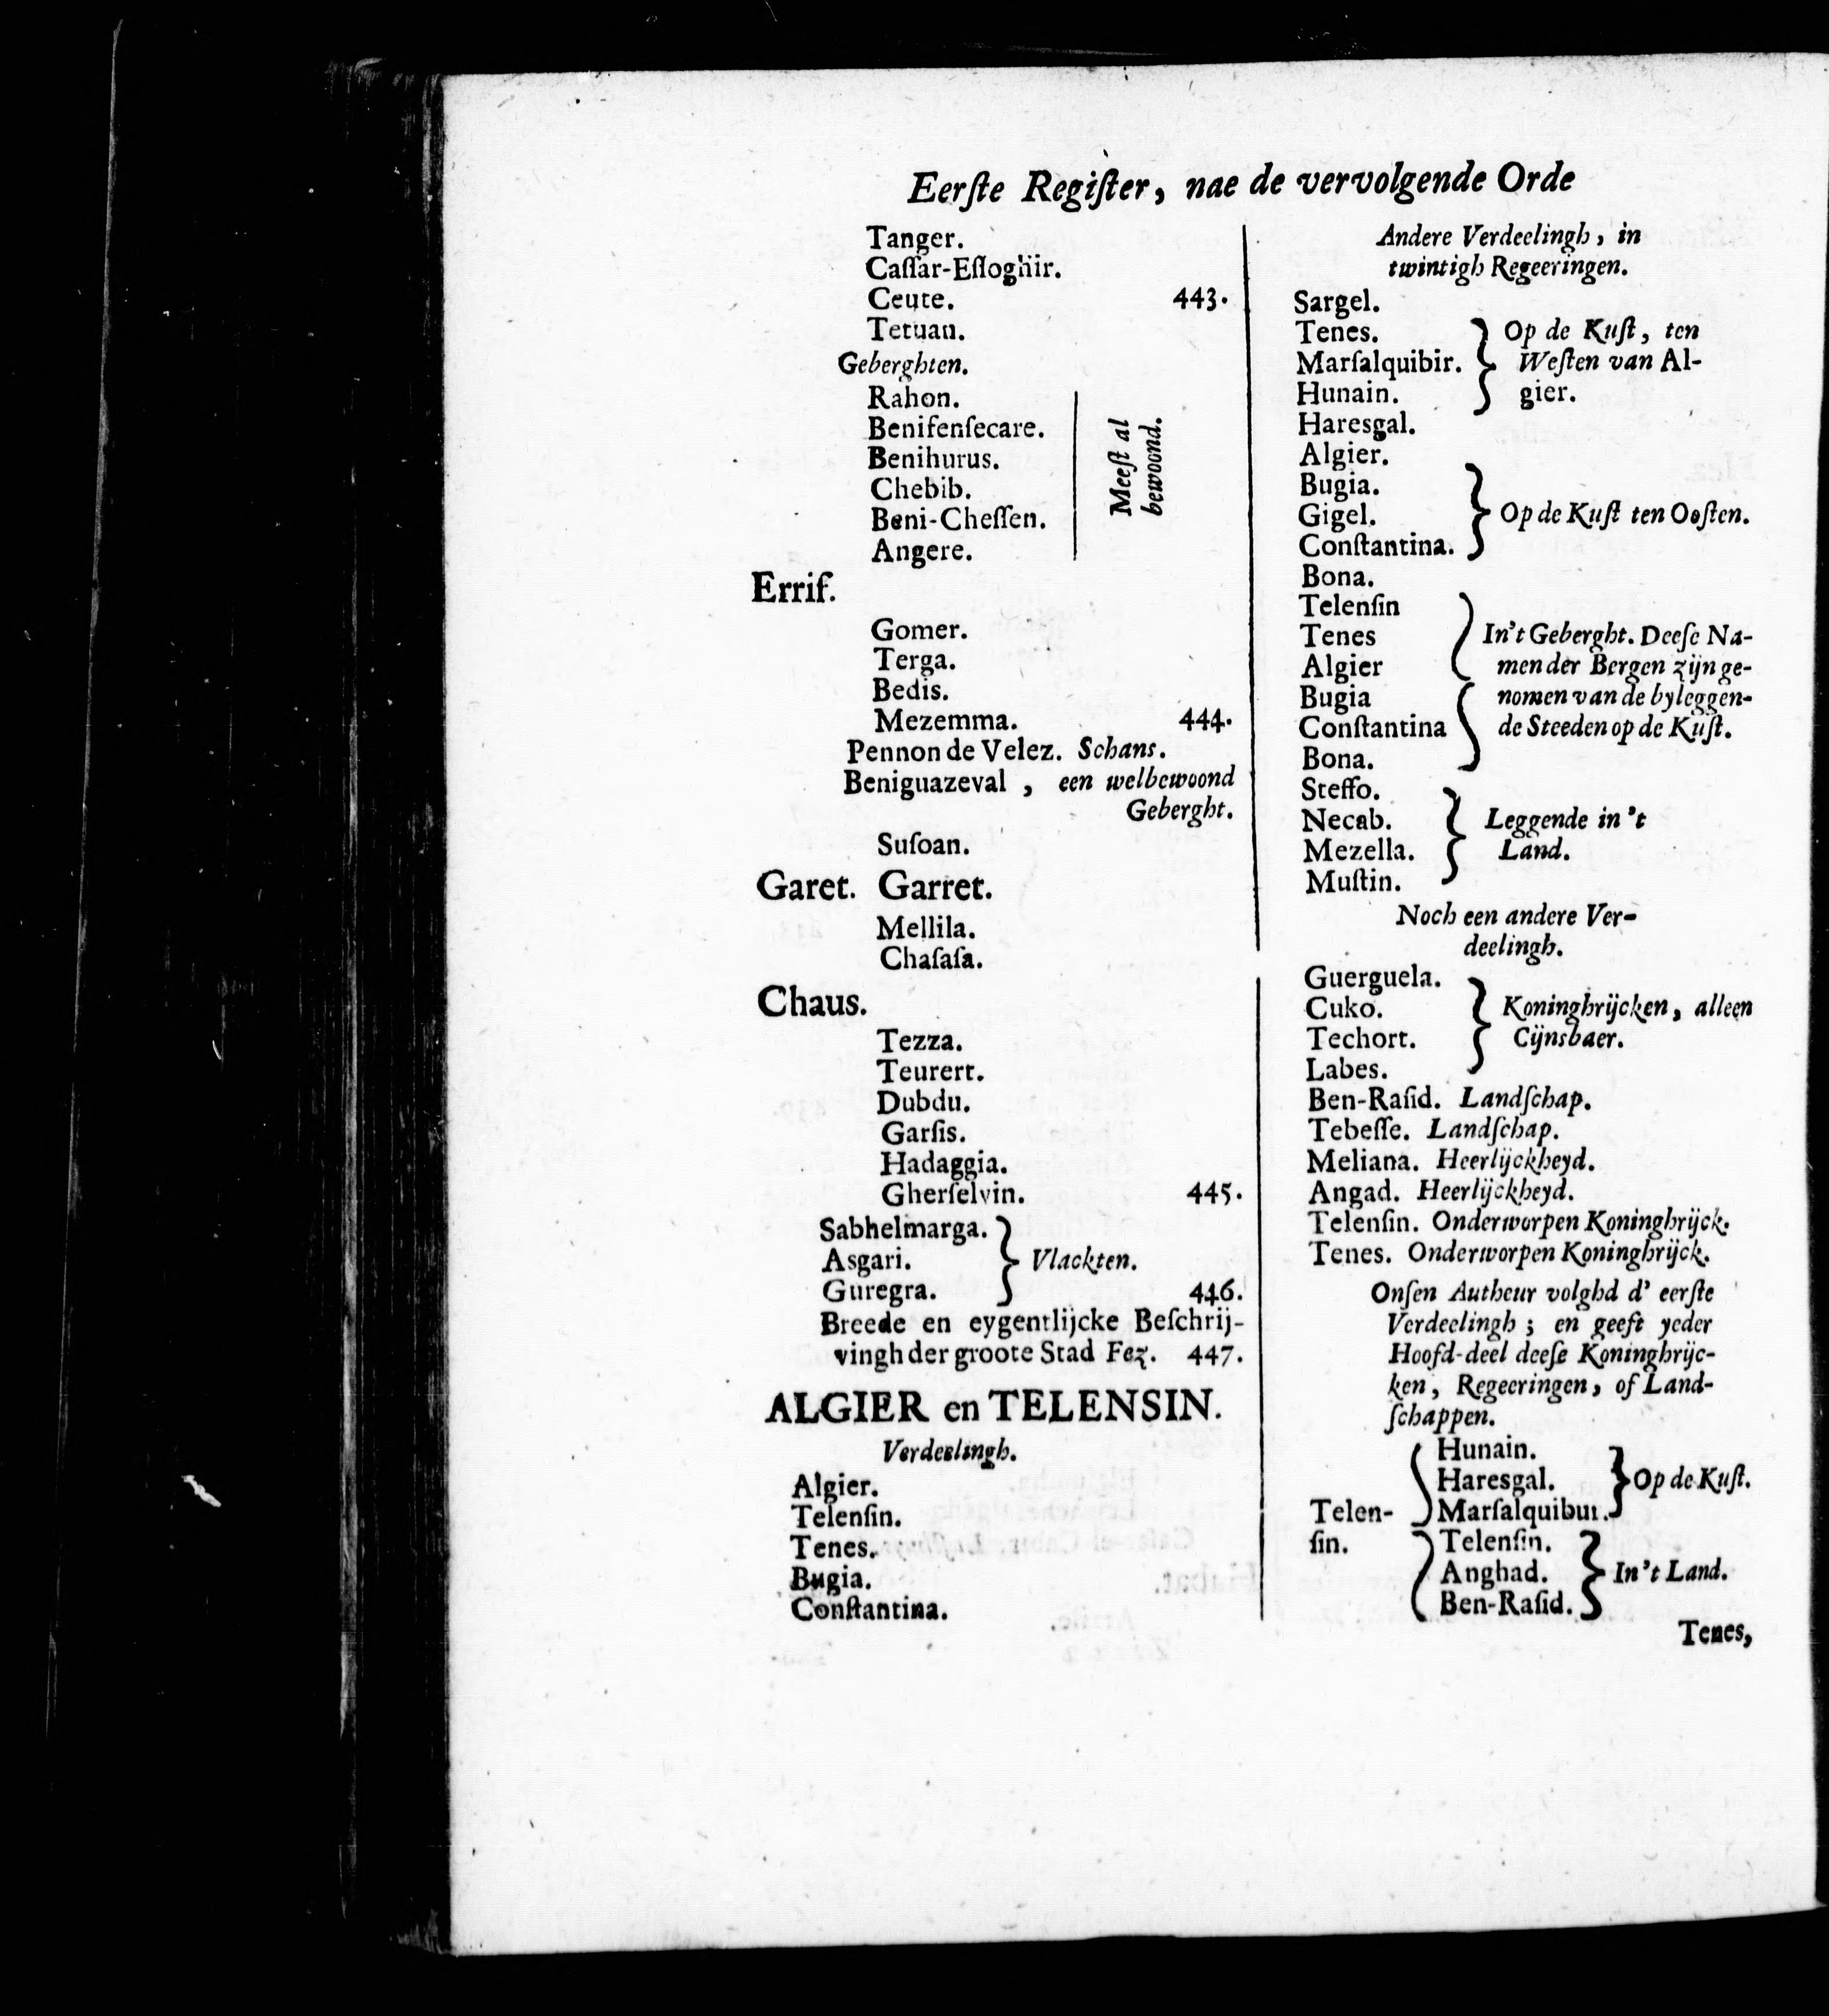 Eerſte Regiſter, nae de vervolgende Orde
Tanger.
Caſſar-Eſſoghir.
Ceute. 443.
Tetuan.
Geberghten.
Rahon.
Beniſenſecare.
Benihurus.
Chebib.
Beni-Cheſſen.
Angere.
Meeſt al
bewoond.
Errif.
Gomer.
Terga.
Bedis.
Mezemma. 444.
Pennon de Velez. Schans.
Beniguazeval , een welbewoond
Geberght.
Suſoan.
Garet. Garret.
Mellila.
Chaſaſa.
Chaus.
Tezza.
Teurert.
Dubdu.
Garſis.
Hadaggia.
Gherſelvin. 445.
Sabhelmarga.
Asgari. } Vlackten.
Guregra. 446.
Breede en eygentlijcke Beſchrij-
vingh der groote Stad Fez. 447.
ALGIER en TELENSIN.
Verdeelingh.
Algier.
Telenſin.
Tenes.
Bugia.
Conſtantina.
Andere Verdeelingh, in
twintigh Regeeringen.
Sargel.
Tenes. Op de Kuſt, ten
Marſalquibir. } Weſten van Al-
Hunain. gier.
Haresgal.
Algier.
Bugia.
Gigel. } Op de Kuſt ten Ooſten.
Conſtantina.
Bona.
Telenſin
Tenes In't Geberght. Deeſe Na-
Algier men der Bergen zijn ge-
Bugia nomen van de byleggen-
Conſtantina de Steeden op de Kuſt.
Bona.
Steffo.
Necab. Leggende in 't
Mezella. Land.
Muſtin.
Noch een andere Ver-
deelingh.
Guerguela.
Cuko. Koninghrijcken, alleen
Techort. Cijnsbaer.
Labes.
Ben-Raſid. Landſchap.
Tebeſſe. Landſchap.
Meliana. Heerlijckheyd.
Angad. Heerlijckheyd.
Telenſin. Onderworpen Koninghrijck.
Tenes. Onderworpen Koninghrijck.
Onſen Autheur volghd d' eerſte
Verdeelingh ; en geeft yeder
Hoofd-deel deeſe Koninghrijc-
ken, Regeeringen, of Land-
ſchappen.
Hunain.
Haresgal. } Op de Kuſt.
Telen- Marſalquibur.
ſin. Telenſin.
Anghad. } In 't Land.
Ben-Raſid.
Tenes,